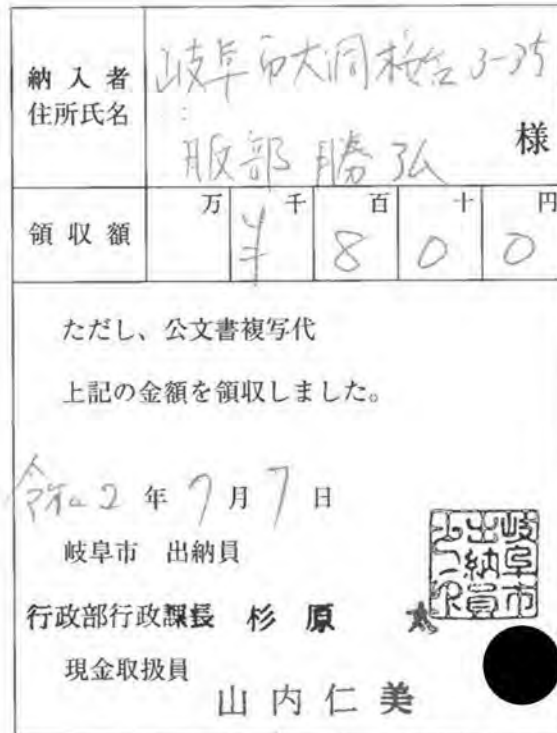 納入者
住所氏名
岐阜市大洞桜台3-35
服部勝弘
様
領収額
万 千 百 十 円
¥ 8 0 0
ただし、公文書複写代
上記の金額を領収しました。
令和2年7月7日
岐阜市 出納員
行政部行政課長 杉原 太
現金取扱員
山内仁美
岐阜市
出納員